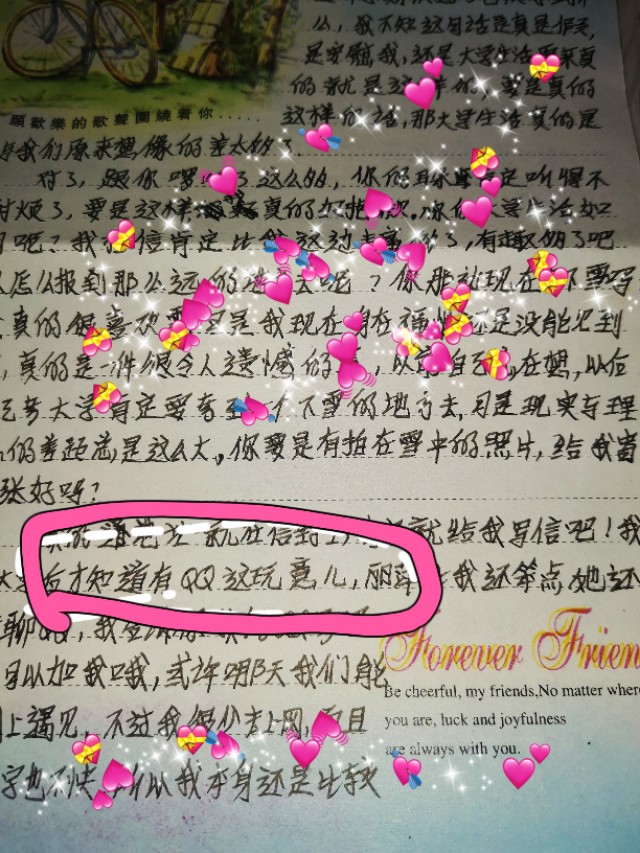 么，我不知这句话是真是假，
是安慰我，还是大学生活原来真
的就是这样的，要是真的
这样的话，那大学生活真的是
願歡樂的歌聲圍繞着你.....
我们原来想像的差太多了。
对了，跟你啰 了这么多，你的耳朵肯定听得不
耐烦了，要是这样 真的好抱歉。你的大学生活如
何呢？我相信肯定比我这边丰富 多了，有趣多了吧
怎么报到那么远的地方去呢？你那边现在下雪吗
真的很喜欢雪，可是我现在身在福州还是没能见到
，真的是一件很令人遗憾的事，以前自己 在想，以后
考大学肯定要考到一个下雪的地方去，可是现实与理
的差距总是这么大。你要是有拍在雪中的照片，给我寄
张好吗？
就在信封上 就给我写信吧！我
后才知道有QQ这玩意儿，丽萍 我还笨点她还
聊QQ，我
可以加我哦，或许哪天我们能
上遇见，不过我很少去上网，而且
字也不快，所以我本身还是比较
Forever Frien
Be cheerful, my friends, No matter where
you are, luck and joyfulness
are always with you.